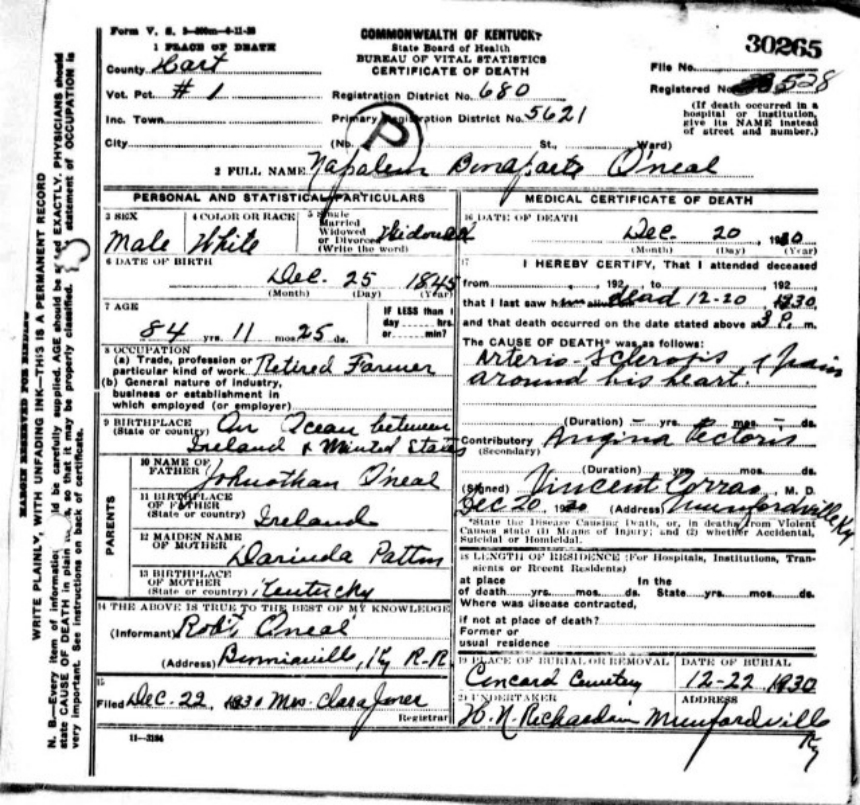 Form V. S. 1-300m-4-11-29
COMMONWEALTH OF KENTUCKY
State Board of Health
BUREAU OF VITAL STATISTICS
CERTIFICATE OF DEATH
30265
1 PLACE OF DEATH
County Hart
File No.
Vot. Pct. # 1
Registration District No. 680
Registered No. 528
Inc. Town
Primary Registration District No. 5621
(If death occurred in a hospital or institution, give its NAME instead of street and number.)
City (No. St., Ward)
P
2 FULL NAME Napoleon Bonaparte O'neal
PERSONAL AND STATISTICAL PARTICULARS
3 SEX
Male
4 COLOR OR RACE
White
5 Single
Married
Widowed
or Divorced
(Write the word)
Widowed
6 DATE OF BIRTH
Dec. 25 1845
(Month) (Day) (Year)
7 AGE
84 yrs. 11 mos. 25 ds.
IF LESS than 1
day hrs.
or min?
8 OCCUPATION
(a) Trade, profession or
particular kind of work Retired Farmer
(b) General nature of industry,
business or establishment in
which employed (or employer)
9 BIRTHPLACE
(State or country) On Ocean between
Ireland & United States
PARENTS
10 NAME OF
FATHER Johnothan O'neal
11 BIRTHPLACE
OF FATHER
(State or country) Ireland
12 MAIDEN NAME
OF MOTHER Darinda Patton
13 BIRTHPLACE
OF MOTHER
(State or country) Kentucky
14 THE ABOVE IS TRUE TO THE BEST OF MY KNOWLEDGE
(Informant) Robt. Oneal
(Address) Bonnieville, Ky R-R.
15
Filed Dec. 22, 1930 Mrs. Clara Jones
Registrar
11-3184
MEDICAL CERTIFICATE OF DEATH
16 DATE OF DEATH
Dec. 20, 1930
(Month) (Day) (Year)
17 I HEREBY CERTIFY, That I attended deceased
from , 192 , to , 192
that I last saw h dead 12-20, 1930
and that death occurred on the date stated above at 3 P. m.
The CAUSE OF DEATH* was as follows:
Arterio-Sclerosis, & pain
around his heart.
(Duration) yrs. mos. ds.
Contributory Angina Pectoris
(Secondary)
(Duration) yrs. mos. ds.
(Signed) Vincent Corrao, M. D.
Dec 20, 1930 (Address) Munfordville Ky.
*State the Disease Causing Death, or, in deaths from Violent
Causes state (1) Means of Injury; and (2) whether Accidental,
Suicidal or Homicidal.
18 LENGTH OF RESIDENCE (For Hospitals, Institutions, Tran-
sients or Recent Residents)
at place In the
of death yrs. mos. ds. State yrs. mos. ds.
Where was disease contracted,
if not at place of death?
Former or
usual residence
19 PLACE OF BURIAL OR REMOVAL
Concord Cemetery
DATE OF BURIAL
12-22 1930
20 UNDERTAKER
H. N. Richardson
ADDRESS
Munfordville
Ky
MARGIN RESERVED FOR BINDING
WRITE PLAINLY, WITH UNFADING INK—THIS IS A PERMANENT RECORD
N. B.—Every item of information be carefully supplied. AGE should be EXACTLY. PHYSICIANS should
state CAUSE OF DEATH in plain so that it may be properly classified. statement of OCCUPATION is
very important. See instructions on back of certificate.